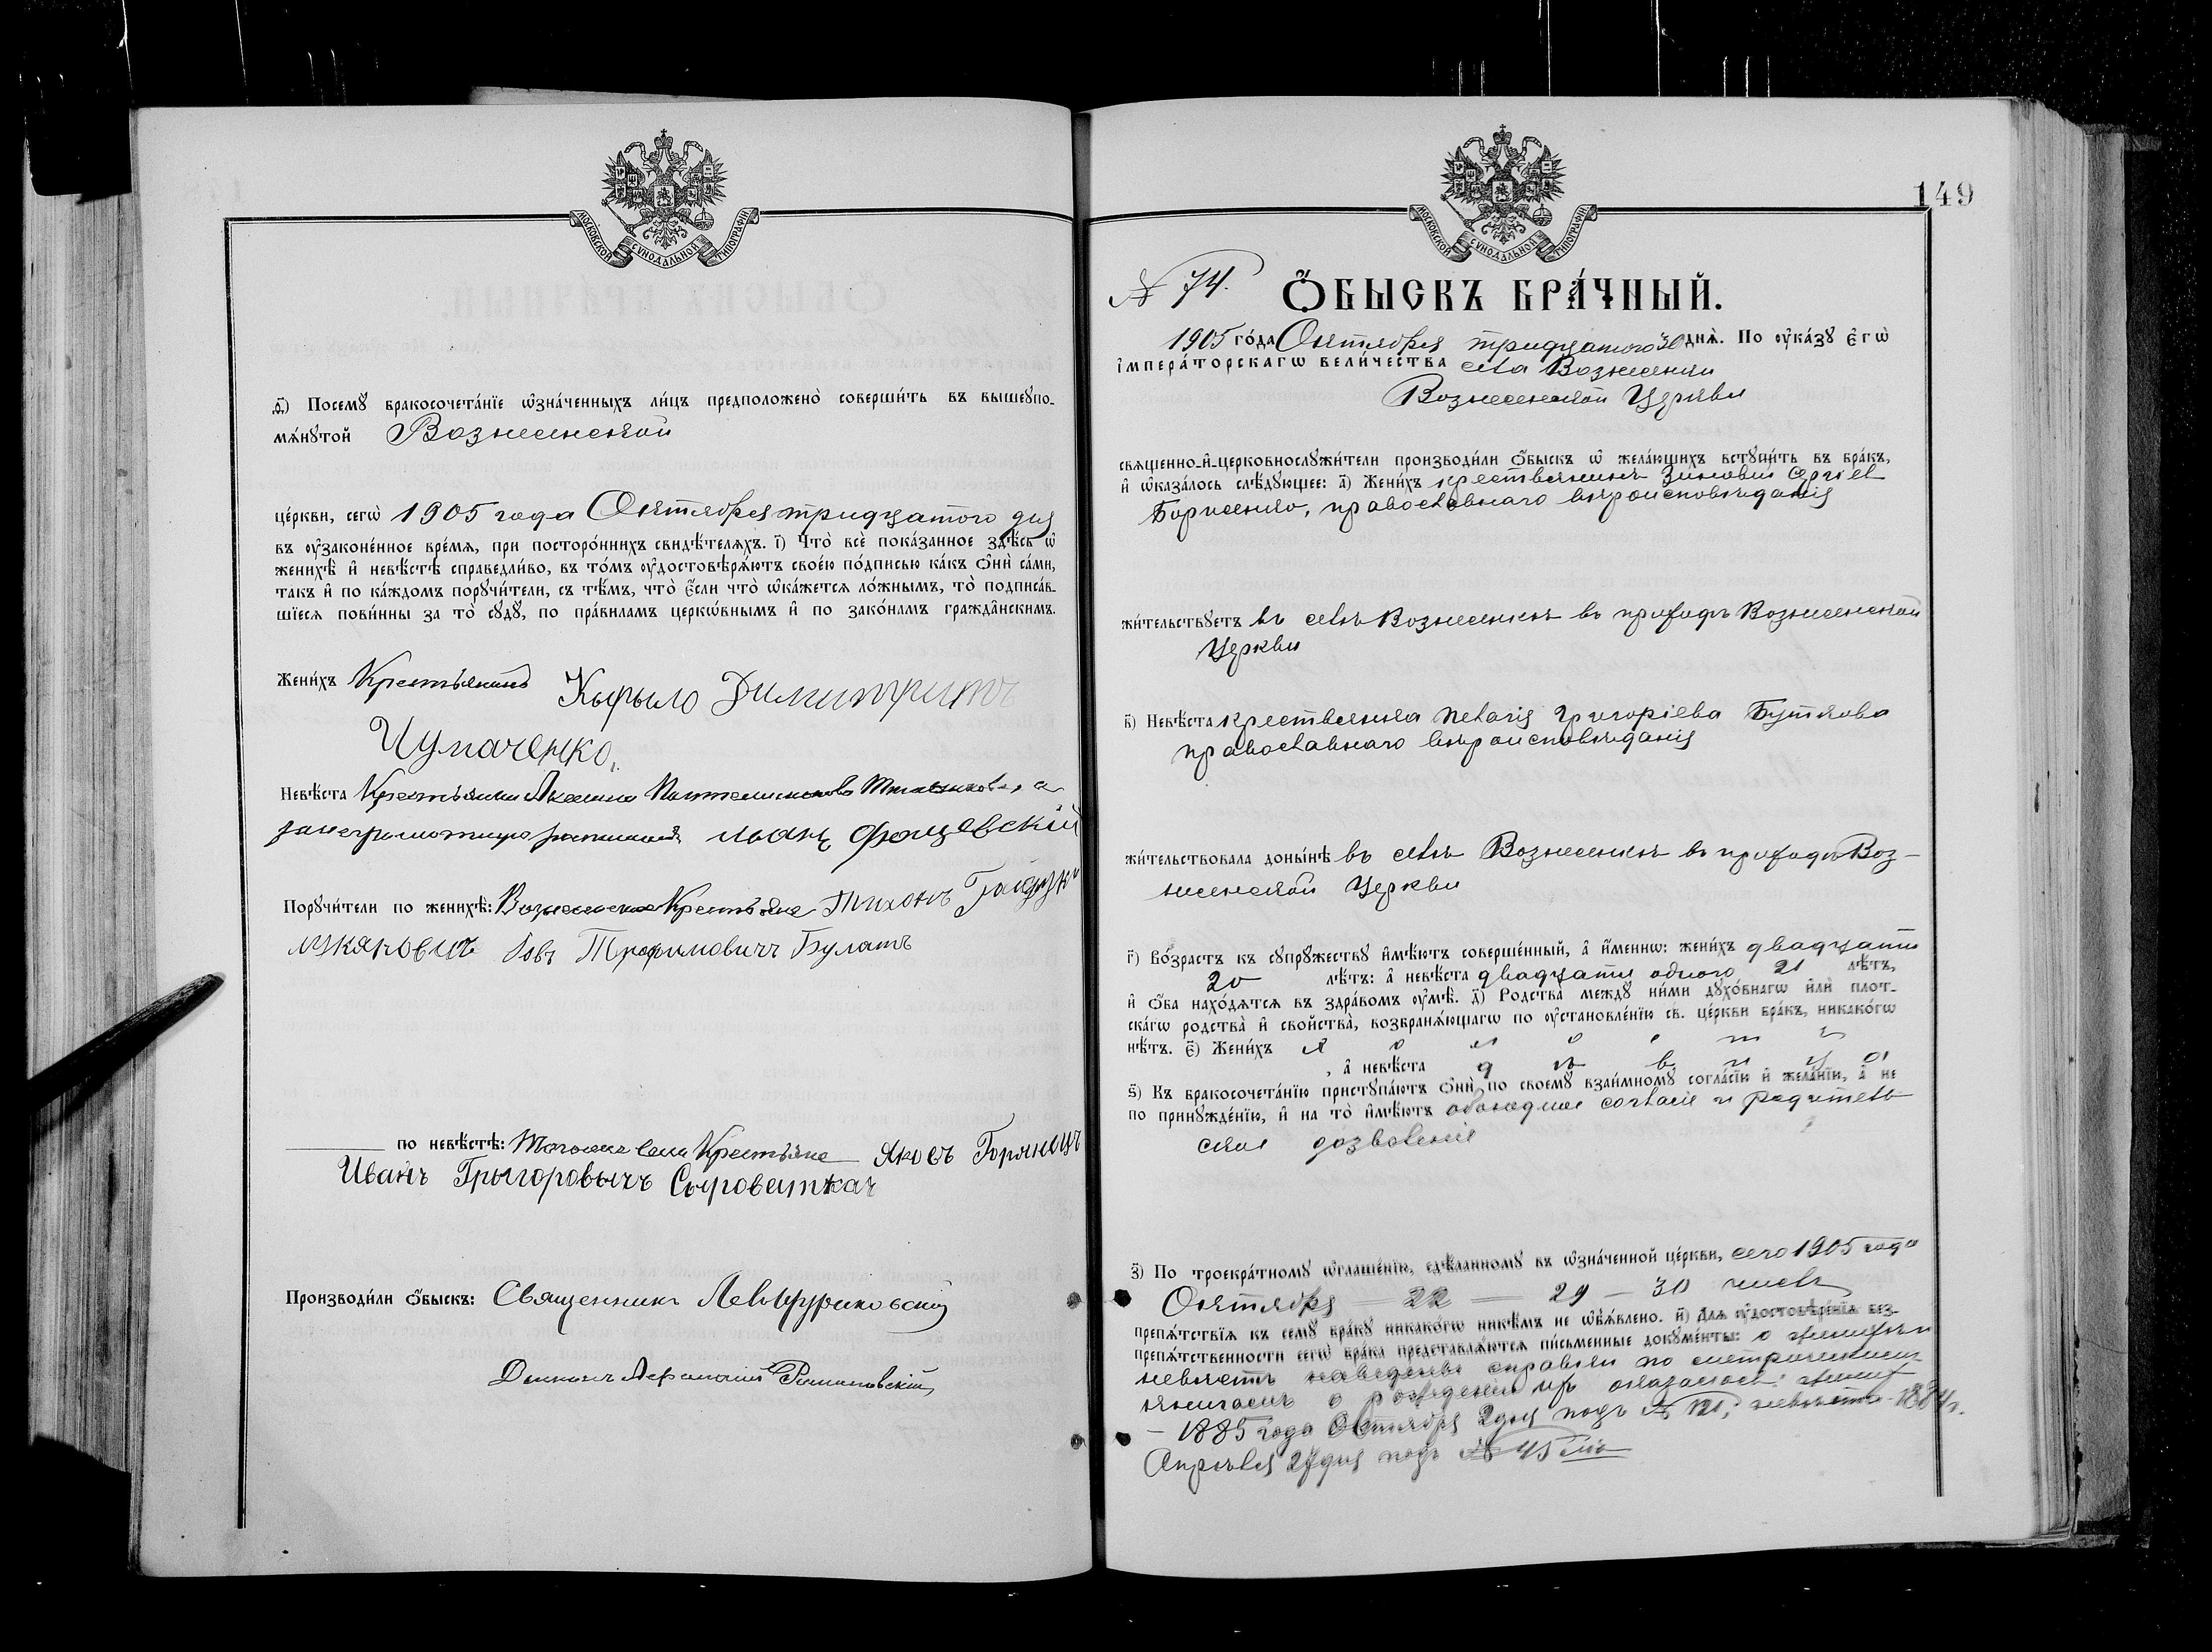 МОСКОВСКОЙ СУНОДАЛЬНОЙ ТИПОГРАФІИ
д҃і) Посемꙋ̀ бракосочета́нїе ѡ҆зна́ченныхъ ли́цъ предположено̀ соверши́ть въ вышеꙋпо-
мѧ́нꙋтой Вознесенской
це́ркви, сегѡ̀ 1905 года Октября тридцатого дня
въ ᲂу҆законе́нное вре́мѧ, при посторо́ннихъ свидѣ́телѧхъ. і҃) Что̀ всѐ пока́занное здѣ́сь ѡ҆
женихѣ̀ и҆ невѣ́стѣ справедли́во, въ то́мъ ᲂу҆достовѣрѧ́ютъ свое́ю по́дписью ка́къ ѻ҆нѝ са́ми,
та́къ и҆ по ка́ждомъ порꙋчи́тели, съ тѣ́мъ, что̀ е҆́сли что̀ ѡ҆ка́жетсѧ ло́жнымъ, то̀ подписа́в-
шїесѧ пови́нны за то̀ сꙋдꙋ̀, по пра́виламъ церко́внымъ и҆ по зако́намъ гражда́нскимъ.
Жени́хъ Крестьянинъ Кырыло Димитрицъ
Чумаченко
Невѣ́ста Крестьянка Акелина Пантелимонова а
занеграмотную Иванъ
Порꙋчи́тели по женихѣ̀: Вознесенскіе Крестьяне Тихонъ
Трофимовичъ Булатъ
по невѣ́стѣ: Крестьяне Яковъ Горяницъ
Иванъ Грыгоровычъ Сыроваткач
Производи́ли ѻ҆́быскъ: Священникъ Левъ
149
МОСКОВСКОЙ СУНОДАЛЬНОЙ ТИПОГРАФІИ
№ 74.
Ѻ҆БЫСКЪ БРА́ЧНЫЙ.
1905 го́да Октября тридцатого 30 днѧ̀. По ᲂу҆ка́зꙋ є҆гѡ̀
і҆мпера́торскагѡ вели́чества села Вознесенки
Вознесенской Церкви
свѧщенно-и҆-церковнослꙋжи́тели производи́ли ѻ҆́быскъ ѡ҆ жела́ющихъ встꙋпи́ть въ бра́къ,
и҆ ѡ҆каза́лось слѣ́дꙋющее: а҃) Жени́хъ крестьянинъ Зиновій Сергіев
Борисенко, православнаго вѣроисповѣданія
жи́тельствꙋетъ въ селѣ Вознесенкѣ въ приходѣ Вознесенской
Церкви
в҃) Невѣ́ста крестьянка Пелагія Григоріева Буткова
православнаго вѣроисповѣданія
жи́тельствовала доны́нѣ въ селѣ Вознесенкѣ въ приходѣ Воз-
несенской Церкви
г҃) Во́зрастъ къ сꙋпрꙋ́жествꙋ и҆мѣ́ютъ соверше́нный, а҆ и҆́меннѡ: жени́хъ двадцати
20 лѣ́тъ: а҆ невѣ́ста двадцати одного 21 лѣ́тъ,
и҆ ѻ҆́ба нахо́дѧтсѧ въ здра́вомъ ᲂу҆мѣ̀. д҃) Родства̀ междꙋ̀ ни́ми дꙋхо́внагѡ и҆лѝ плот-
ска́гѡ родства̀ и҆ сво́йства, возбранѧ́ющагѡ по ᲂу҆становле́нїю св. це́ркви бра́къ, никако́гѡ
нѣ́тъ. є҃) Жени́хъ х о л о с т ъ
, а҆ невѣ́ста д ѣ в и ц а
ѕ҃) Къ бракосочета́нїю пристꙋпа́ютъ ѻ҆нѝ по своемꙋ̀ взаи́мномꙋ согла́сїю и҆ жела́нїю, а҆ не
по принꙋжде́нїю, и҆ на то̀ и҆мѣ́ютъ обоюдное согласіе и родитель
ское дозволеніе
з҃) По троекра́тномꙋ ѡ҆глаше́нїю, сдѣ́ланномꙋ въ ѡ҆зна́ченной це́ркви, сего 1905 года
Октября — 22 — 29 — 30 числъ
препѧ́тствїѧ къ семꙋ̀ бра́кꙋ никако́гѡ никѣ́мъ не ѡ҆б̾ѧ́влено. и҃) Длѧ ᲂу҆достовѣре́нїѧ без-
препѧ́тственности сегѡ̀ бра́ка представлѧ́ютсѧ пи́сьменные докꙋме́нты: о женихѣ и
невѣстѣ наведены справки по метрическимъ
книгамъ о рожденіи ихъ оказалось: жених
— 1885 года Октября 2 дня подъ № 121, невѣста 1884 г.
Апрѣля 27 дня подъ № 45